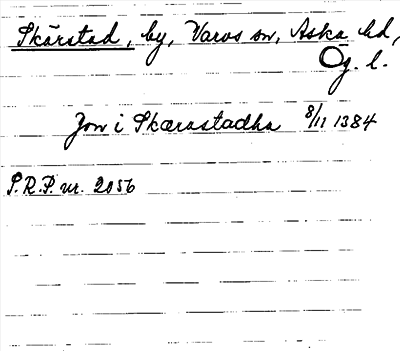 Skärstad, by, Varvs sn, Aska hd,
Ög. l.
Jon i Skærastadha 8/11 1384
S.R.P. nr. 2056